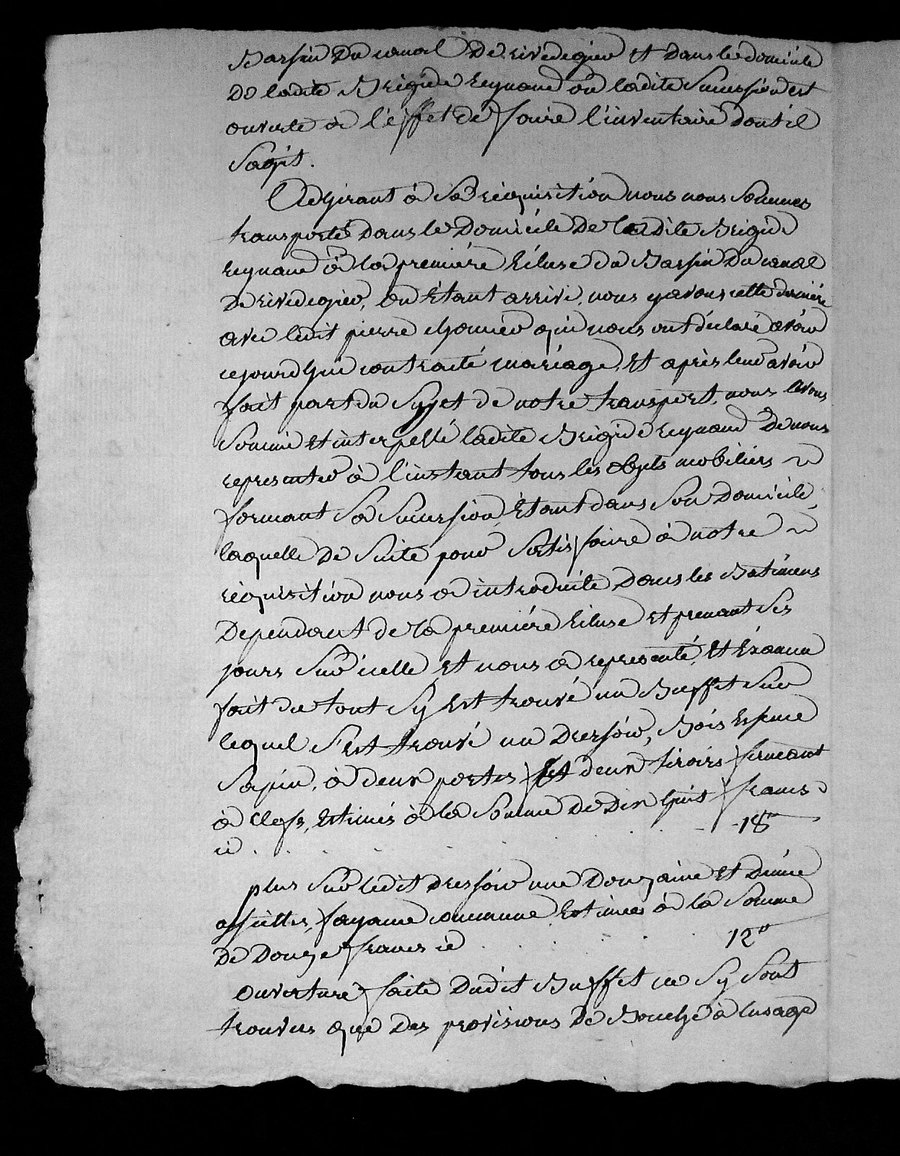 Bassin du canal de rivedegier et dans le domicile
De ladite Brigide Reynaud ou ladite Succession est
ouverte à l'effet de faire l'inventaire dont il
S'agit.
Adhérant à Sa réquisition nous nous Sommes
transporté dans le Domicile De ladite Brigide
Reynaud à la première Ecluse du Bassin Du canal
De rivedegier, ou Etant arrivé, nous y avons cette dernière
avec ledit pierre qui nous ont déclaré avoir
cejourdhui contracté mariage, Et après leur avoir
fait part du Sujet de notre transport, nous avons
Sommé et interpellé ladite Brigide Reynaud De nous
representer à l'instant tous les objets mobiliers
formant Sa Succession, Etant dans Son Domicile,
laquelle De Suite pour Satisfaire à notre
réquisition nous a introduite Dans les Batimens
Dependant de la première Ecluse et prenant Ses
jours Sur icelle et nous a representé, Et Examen
fait de tout Sy Est trouvé un Buffet Sur
lequel S'est trouvé un Dressoir, Bois Espece
Sapin, à deux portes Et deux tiroirs fermant
à Clefs, Estimés à la Somme De Dix huit francs
ci . . . . 18"
plus Sur ledit Dressoir une Douzaine Et Demie
assiettes, fayance commune Estimées à la Somme
De Douze francs ci . . . 12"
Ouverture faite Dudit Buffet ne Sy Sont
trouvés que Des provisions De Bouche à lusage